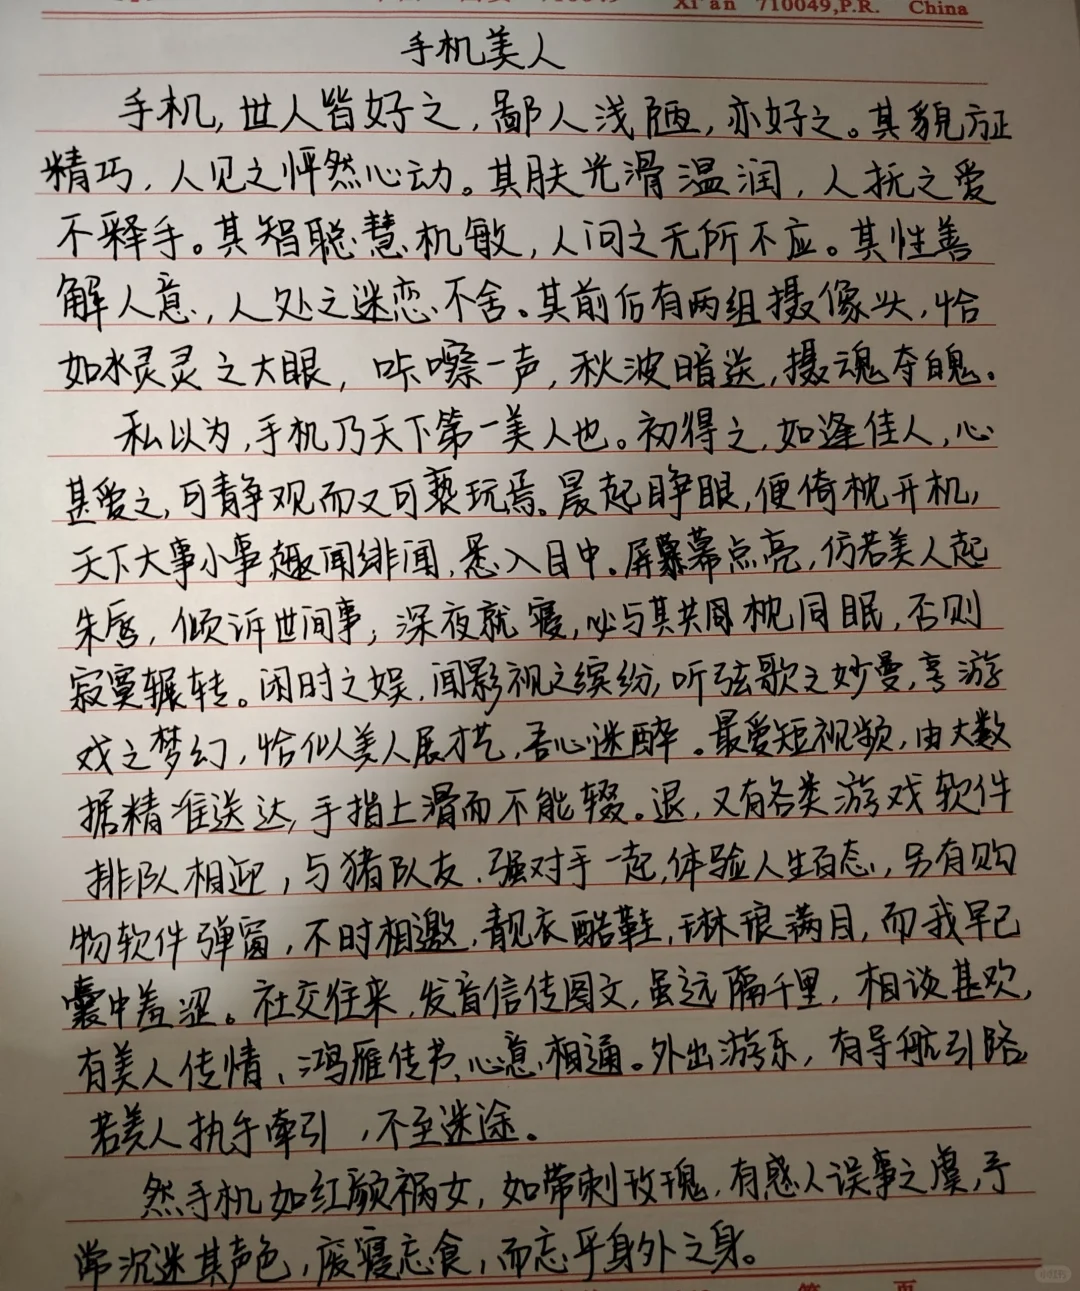 Xi'an 710049,P.R. China
手机美人
手机,世人皆好之,鄙人浅陋,亦好之。其貌方正
精巧,人见之怦然心动。其肤光滑温润,人抚之爱
不释手。其智聪慧机敏,人问之无所不应。其性善
解人意,人处之迷恋不舍。其前后有两组摄像头,恰
如水灵灵之大眼,咔嚓一声,秋波暗送,摄魂夺魄。
私以为,手机乃天下第一美人也。初得之,如逢佳人,心
甚爱之,可静观而又可亵玩焉。晨起睁眼,便倚枕开机,
天下大事小事趣闻绯闻,悉入目中。屏幕点亮,仿若美人起
朱唇,倾诉世间事;深夜就寝,必与其共同枕同眠,否则
寂寞辗转。闲时之娱,闻影视之缤纷,听弦歌之妙曼,享游
戏之梦幻,恰似美人展才艺,吾心迷醉。最爱短视频,由大数
据精准送达,手指上滑而不能辍。退,又有各类游戏软件
排队相迎,与猪队友、强对手一起,体验人生百态,另有购
物软件弹窗,不时相邀,靓衣酷鞋,琳琅满目,而我早已
囊中羞涩。社交往来,发音信传图文,虽远隔千里,相谈甚欢,
有美人传情、鸿雁传书、心意相通。外出游乐,有导航引路,
若美人执手牵引,不至迷途。
然手机如红颜祸女,如带刺玫瑰,有惑人误事之虞,予
常沉迷其声色,废寝忘食,而忘乎身外之身。
第 页